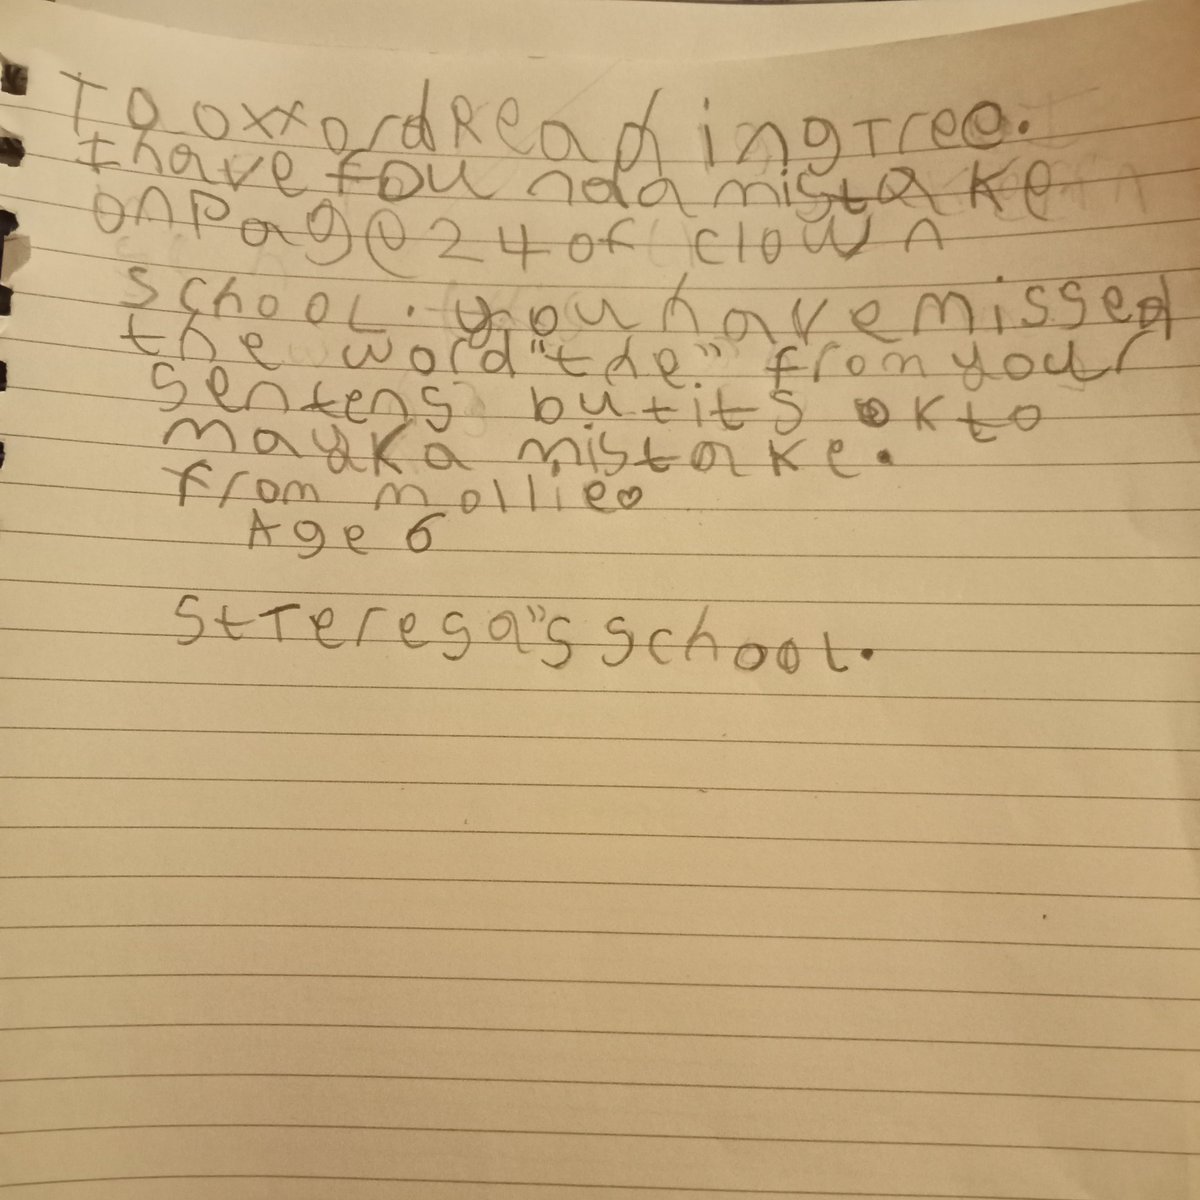 To oxxord Reading Tree.
I have found a mistake
on Page 24 of clown
school. you have missed
the word "the" from your
sentens but its ok to
mayk a mistake.
from mollie
Age 6
St Teresa"s school.